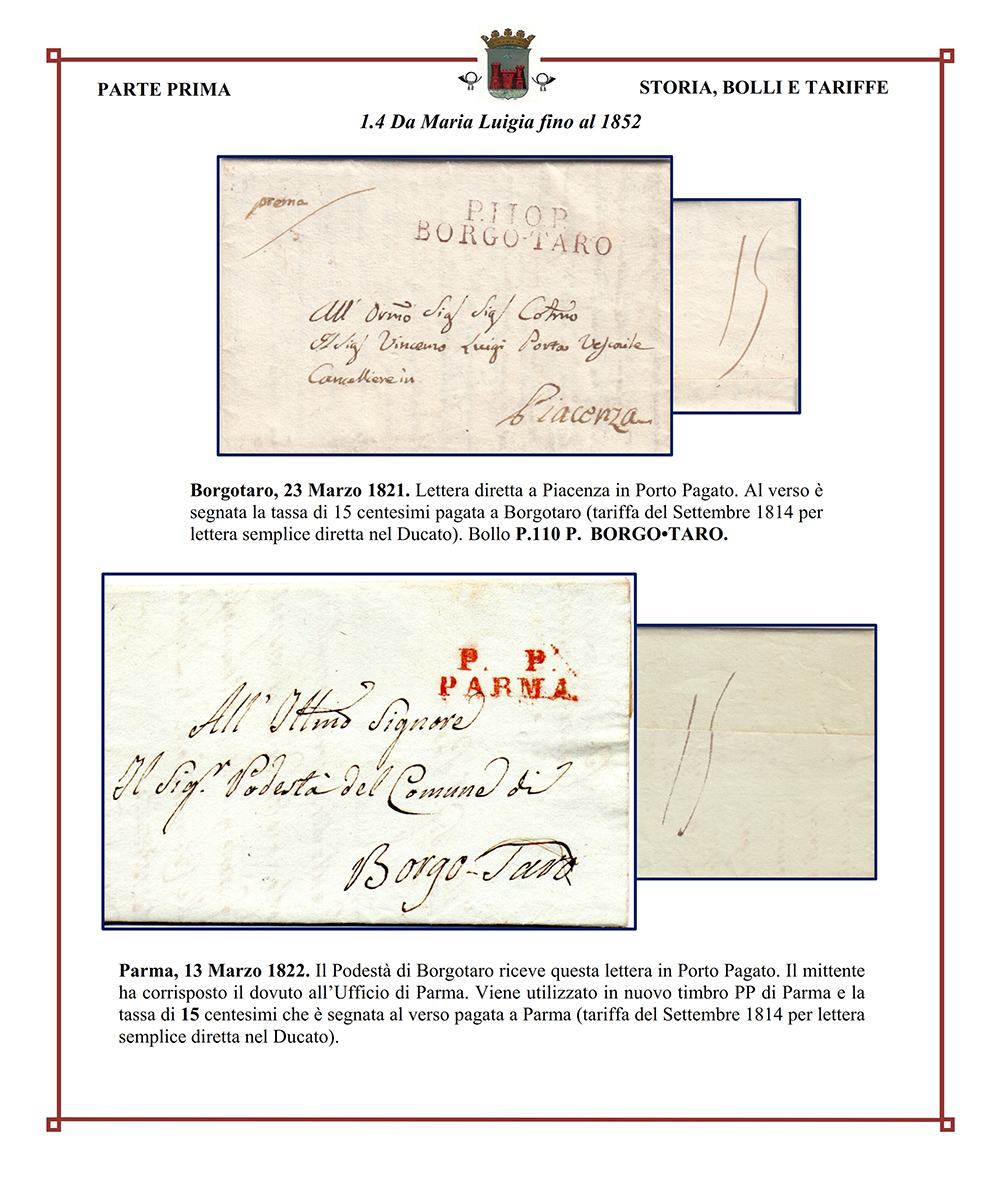 PARTE PRIMA
STORIA, BOLLI E TARIFFE
1.4 Da Maria Luigia fino al 1852
prema
P.110P.
BORGO-TARO
All' Ornmo Sig Sig Colmo
Il Sig Vincenzo Luigi Porta Vescovile
Cancelliere in
Piacenza
15
Borgotaro, 23 Marzo 1821. Lettera diretta a Piacenza in Porto Pagato. Al verso è
segnata la tassa di 15 centesimi pagata a Borgotaro (tariffa del Settembre 1814 per
lettera semplice diretta nel Ducato). Bollo P.110 P. BORGO•TARO.
P. P.
PARMA.
All' Illmo Signore
Il Sigr. Podestà del Comune di
Borgo-Taro
15
Parma, 13 Marzo 1822. Il Podestà di Borgotaro riceve questa lettera in Porto Pagato. Il mittente
ha corrisposto il dovuto all’Ufficio di Parma. Viene utilizzato in nuovo timbro PP di Parma e la
tassa di 15 centesimi che è segnata al verso pagata a Parma (tariffa del Settembre 1814 per lettera
semplice diretta nel Ducato).